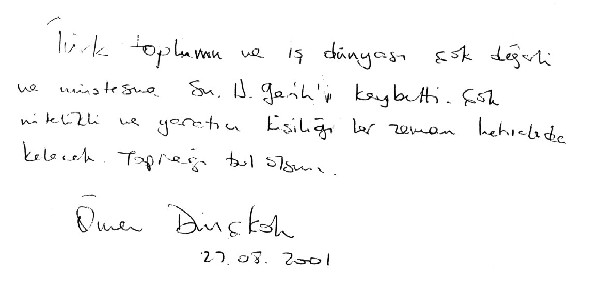 Türk toplumu ve iş dünyası çok değerli
ve müstesna Sn. Ü. Garih'i kaybetti. Çok
nitelikli ve yaratıcı kişiliği her zaman hatıralarda
kalacak. Toprağı bol olsun.
Ömer Dinçkök
27.08.2001